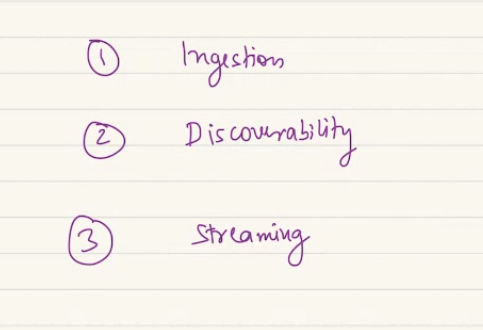 ① Ingestion
② Discoverability
③ Streaming